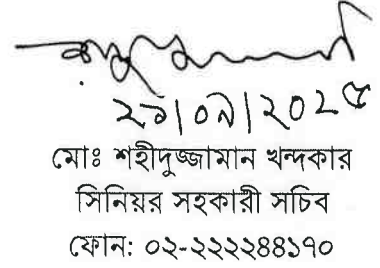 ২১|০৯|২০২৫
মোঃ শহীদুজ্জামান খন্দকার
সিনিয়র সহকারী সচিব
ফোন: ০২-২২২২৪৪১৭০